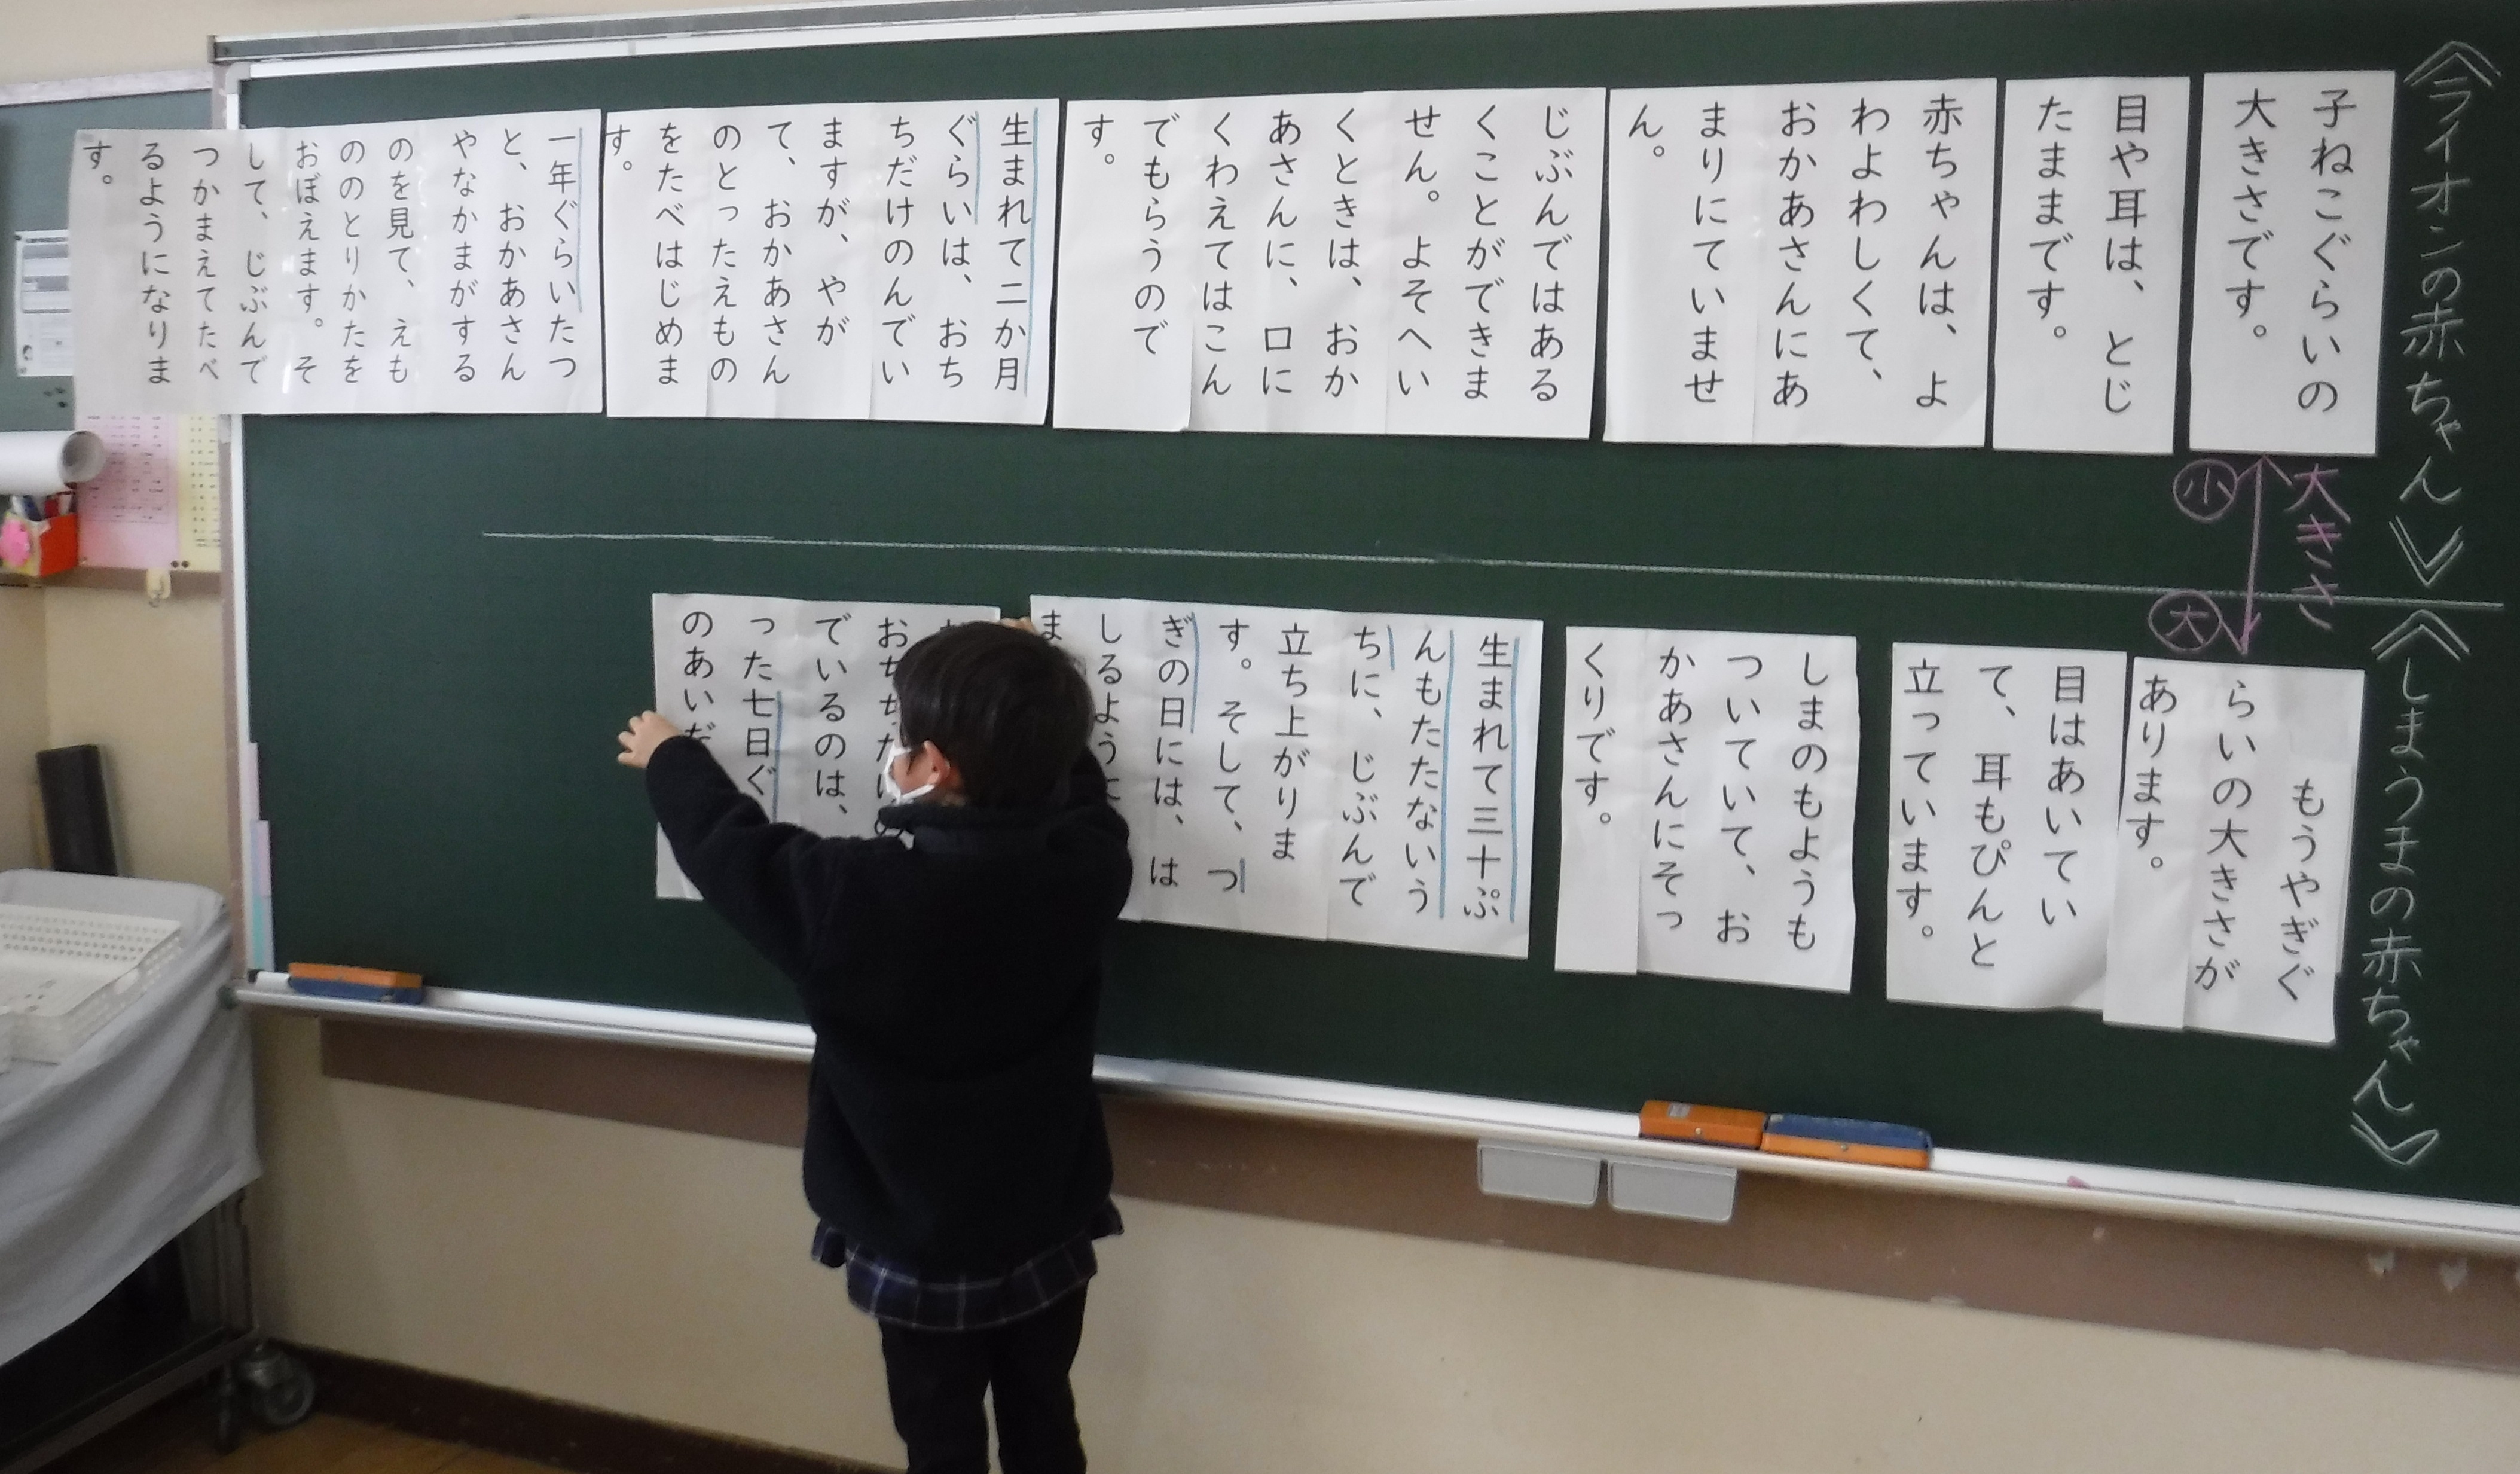 《ライオンの赤ちゃん》
子ねこぐらいの
大きさです。
目や耳は、とじ
たままです。
赤ちゃんは、よ
わよわしくて、
おかあさんにあ
まりにていませ
ん。
じぶんではある
くことができま
せん。よそへい
くときは、おか
あさんに、口に
くわえてはこん
でもらうので
す。
生まれて二か月
ぐらいは、おち
ちだけのんでい
ますが、やが
て、おかあさん
のとったえもの
をたべはじめま
す。
一年ぐらいたつ
と、おかあさん
やなかまがする
のを見て、えも
ののとりかたを
おぼえます。そ
して、じぶんで
つかまえてたべ
るようになりま
す。
大きさ
小
大
《しまうまの赤ちゃん》
もうやぎぐ
らいの大きさが
あります。
目はあいてい
て、耳もぴんと
立っています。
しまのもようも
ついていて、お
かあさんにそっ
くりです。
生まれて三十ぷ
んもたたないう
ちに、じぶんで
立ち上がりま
す。そして、つ
ぎの日には、は
しるように
ま
おちちだけの
でいるのは、
った七日ぐ
のあいだ